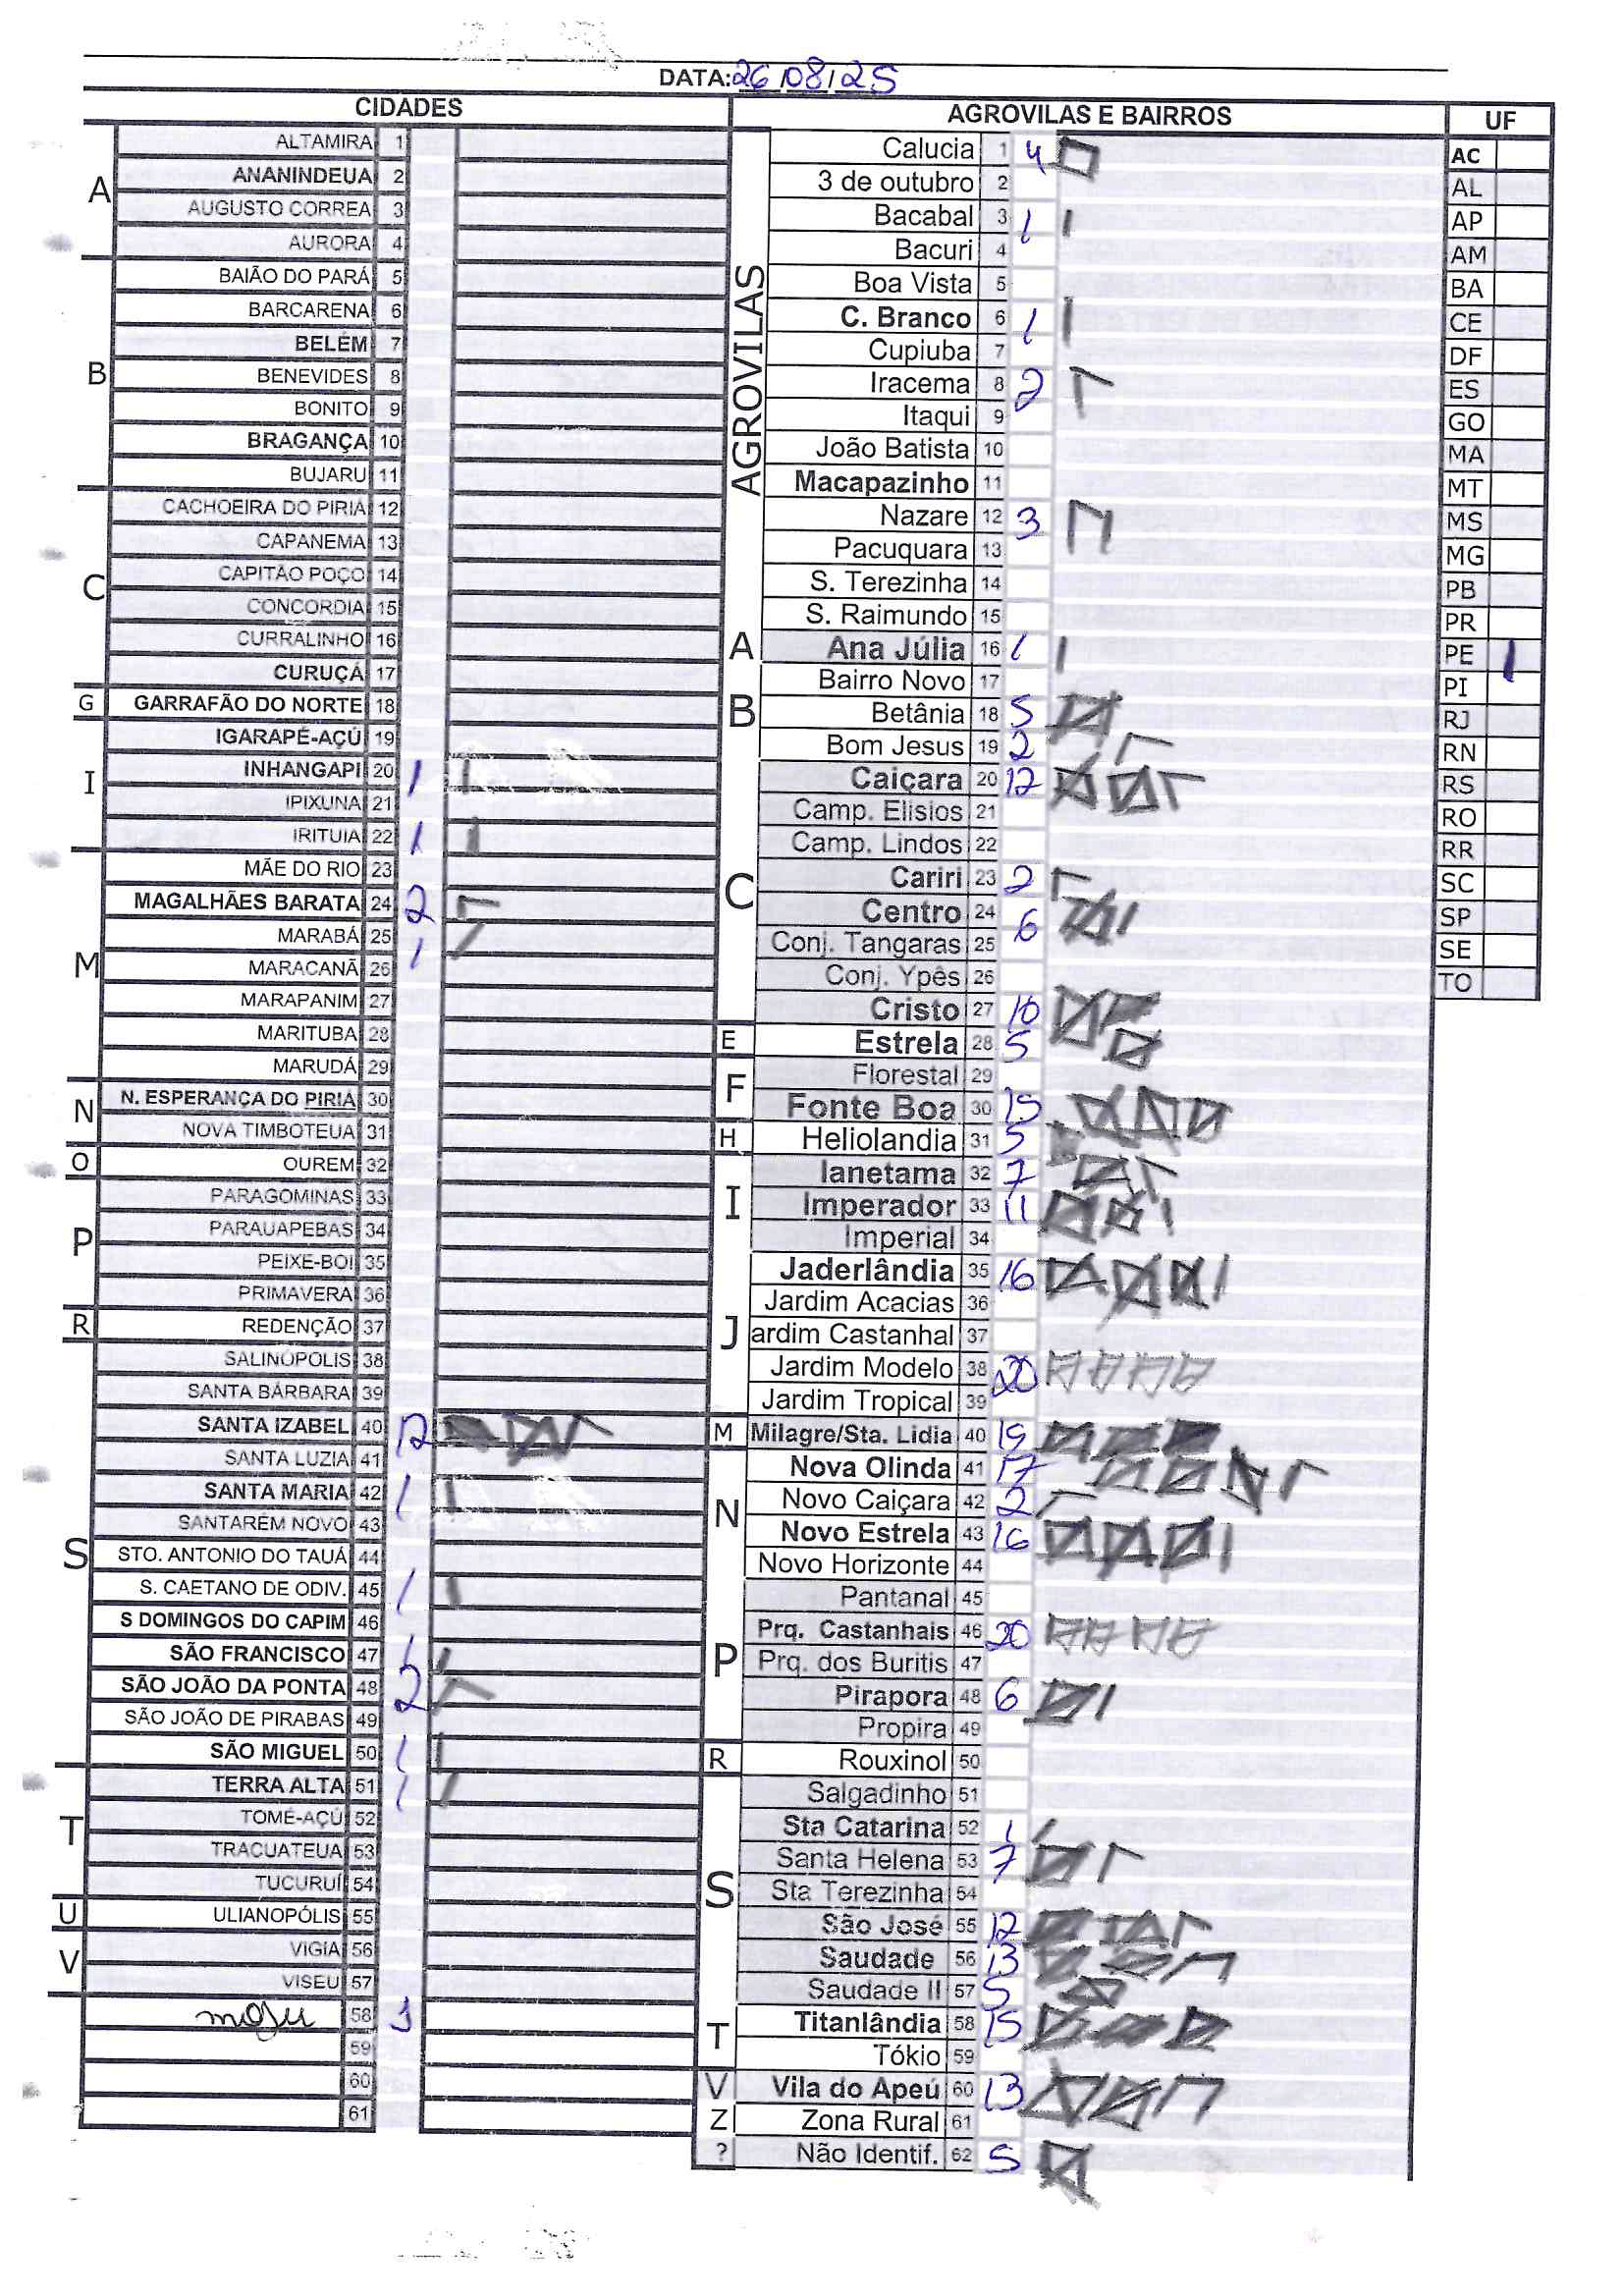 DATA: 26/08/25
CIDADES
A
ALTAMIRA 1
ANANINDEUA 2
AUGUSTO CORREA 3
AURORA 4
B
BAIÃO DO PARÁ 5
BARCARENA 6
BELÉM 7
BENEVIDES 8
BONITO 9
BRAGANÇA 10
BUJARU 11
C
CACHOEIRA DO PIRIÁ 12
CAPANEMA 13
CAPITÃO POÇO 14
CONCORDIA 15
CURRALINHO 16
CURUÇÁ 17
G
GARRAFÃO DO NORTE 18
I
IGARAPÉ-AÇÚ 19
INHANGAPI 20 1
IPIXUNA 21
IRITUIA 22 1
M
MÃE DO RIO 23
MAGALHÃES BARATA 24 2
MARABÁ 25 1
MARACANÃ 26
MARAPANIM 27
MARITUBA 28
MARUDÁ 29
N
N. ESPERANÇA DO PIRIÁ 30
NOVA TIMBOTEUA 31
O
OUREM 32
P
PARAGOMINAS 33
PARAUAPEBAS 34
PEIXE-BOI 35
PRIMAVERA 36
R
REDENÇÃO 37
S
SALINÓPOLIS 38
SANTA BÁRBARA 39
SANTA IZABEL 40 12
SANTA LUZIA 41
SANTA MARIA 42 1
SANTARÉM NOVO 43
STO. ANTONIO DO TAUÁ 44
S. CAETANO DE ODIV. 45 1
S DOMINGOS DO CAPIM 46
SÃO FRANCISCO 47 1
SÃO JOÃO DA PONTA 48 2
SÃO JOÃO DE PIRABAS 49
SÃO MIGUEL 50 1
T
TERRA ALTA 51 1
TOMÉ-AÇÚ 52
TRACUATEUA 53
TUCURUÍ 54
U
ULIANOPÓLIS 55
V
VIGIA 56
VISEU 57
moju 58 1
59
60
61
AGROVILAS E BAIRROS
AGROVILAS
Calucia 1 4
3 de outubro 2
Bacabal 3 1
Bacuri 4
Boa Vista 5
C. Branco 6 1
Cupiuba 7
Iracema 8 2
Itaqui 9
João Batista 10
Macapazinho 11
Nazare 12 3
Pacuquara 13
S. Terezinha 14
S. Raimundo 15
A
Ana Júlia 16 1
B
Bairro Novo 17
Betânia 18 5
Bom Jesus 19 2
C
Caiçara 20 12
Camp. Elisios 21
Camp. Lindos 22
Cariri 23 2
Centro 24 6
Conj. Tangaras 25
Conj. Ypês 26
Cristo 27 10
E
Estrela 28 5
F
Florestal 29
Fonte Boa 30 15
H
Heliolandia 31 5
I
Ianetama 32 7
Imperador 33 11
Imperial 34
J
Jaderlândia 35 16
Jardim Acacias 36
ardim Castanhal 37
Jardim Modelo 38 20
Jardim Tropical 39
M
Milagre/Sta. Lidia 40
N
Nova Olinda 41 17
Novo Caiçara 42 2
Novo Estrela 43 16
Novo Horizonte 44
P
Pantanal 45
Prq. Castanhais 46 20
Prq. dos Buritis 47
Pirapora 48 6
Propira 49
R
Rouxinol 50
S
Salgadinho 51
Sta Catarina 52 1
Santa Helena 53 7
Sta Terezinha 54
São José 55 12
Saudade 56 13
Saudade II 57 5
T
Titanlândia 58 15
Tókio 59
V
Vila do Apeú 60 13
Z
Zona Rural 61
?
Não Identif. 62 5
UF
AC
AL
AP
AM
BA
CE
DF
ES
GO
MA
MT
MS
MG
PB
PR
PE 1
PI
RJ
RN
RS
RO
RR
SC
SP
SE
TO